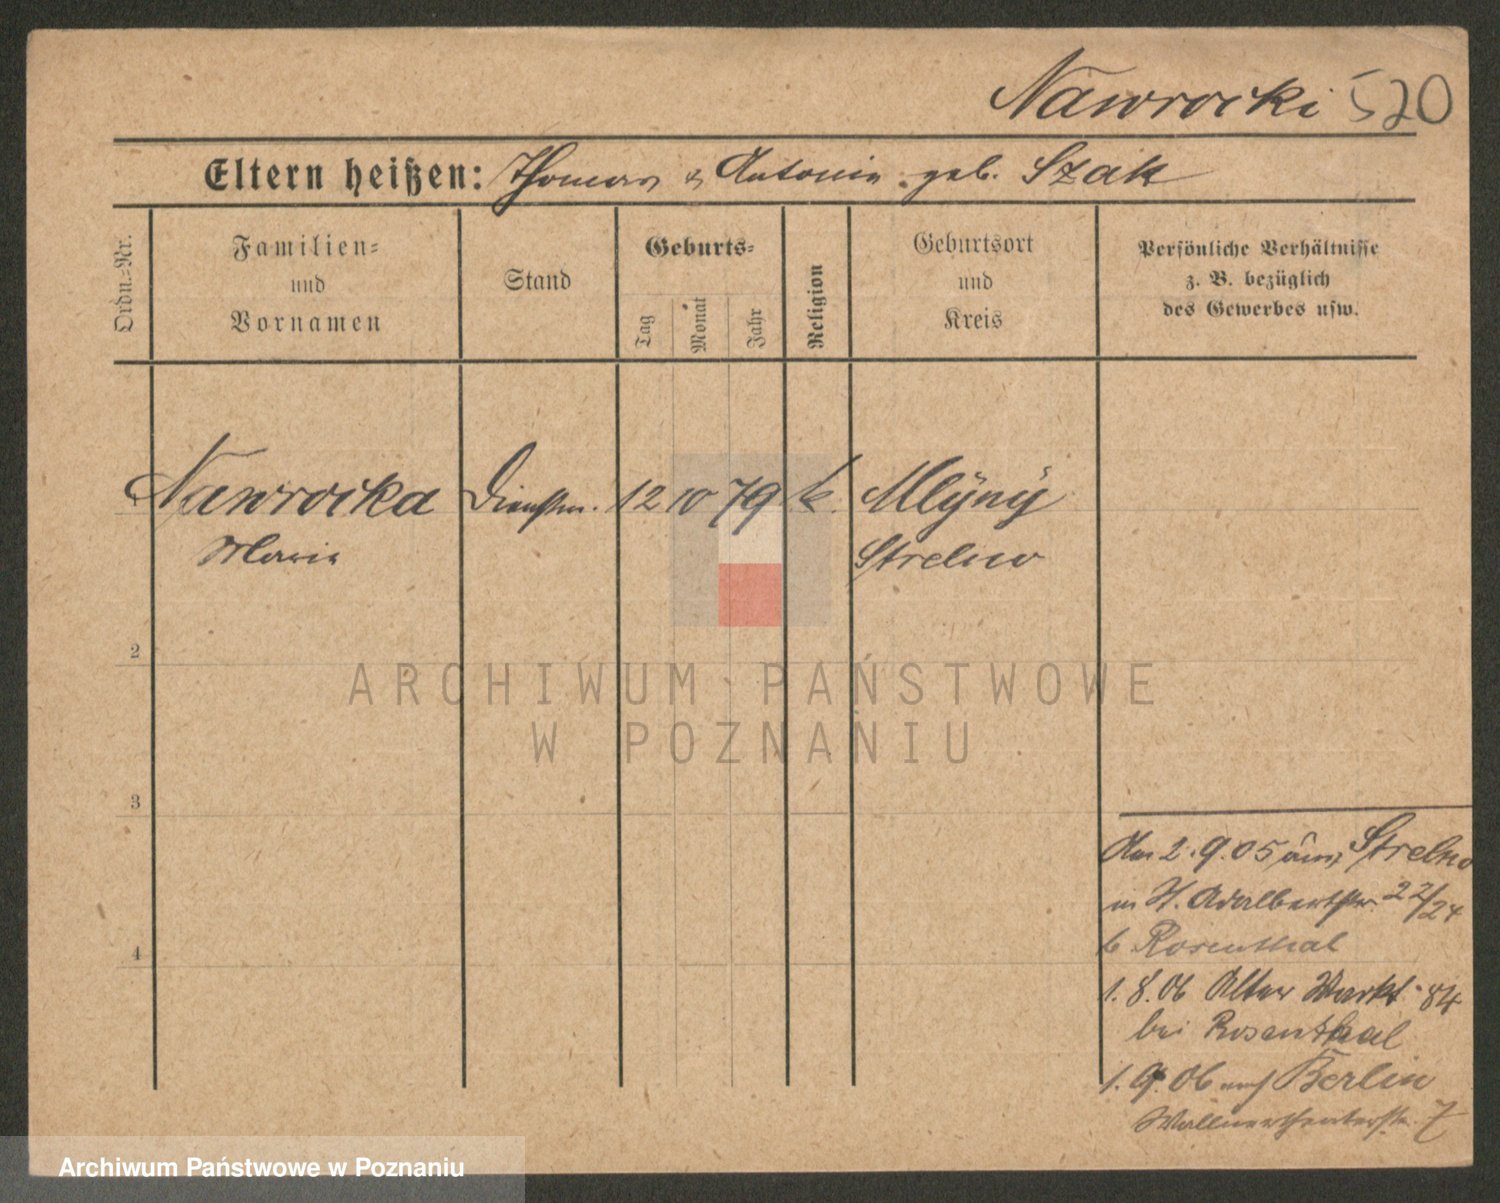 Nawrocki 520
Eltern heißen: Thomas & Antonie geb. Szak
Ordn.=Nr.
Familien=
und
Vornamen
Stand
Geburts=
Tag
Monat
Jahr
Religion
Geburtsort
und
Kreis
Persönliche Verhältnisse
z. B. bezüglich
des Gewerbes usw.
Nawrocka Dienstm. 12 10 79 k. Mlÿnÿ
Maria Strelno
2
3
4
Am 2.9.05 aus Strelno
in St. Adalbertstr. 22/24
b Rosenthal
1.8.06 Alter Markt 84
bei Rosenthal
1.9.06 nach Berlin
Wallnertheaterstr. 7
ARCHIWUM PAŃSTWOWE
W POZNANIU
Archiwum Państwowe w Poznaniu